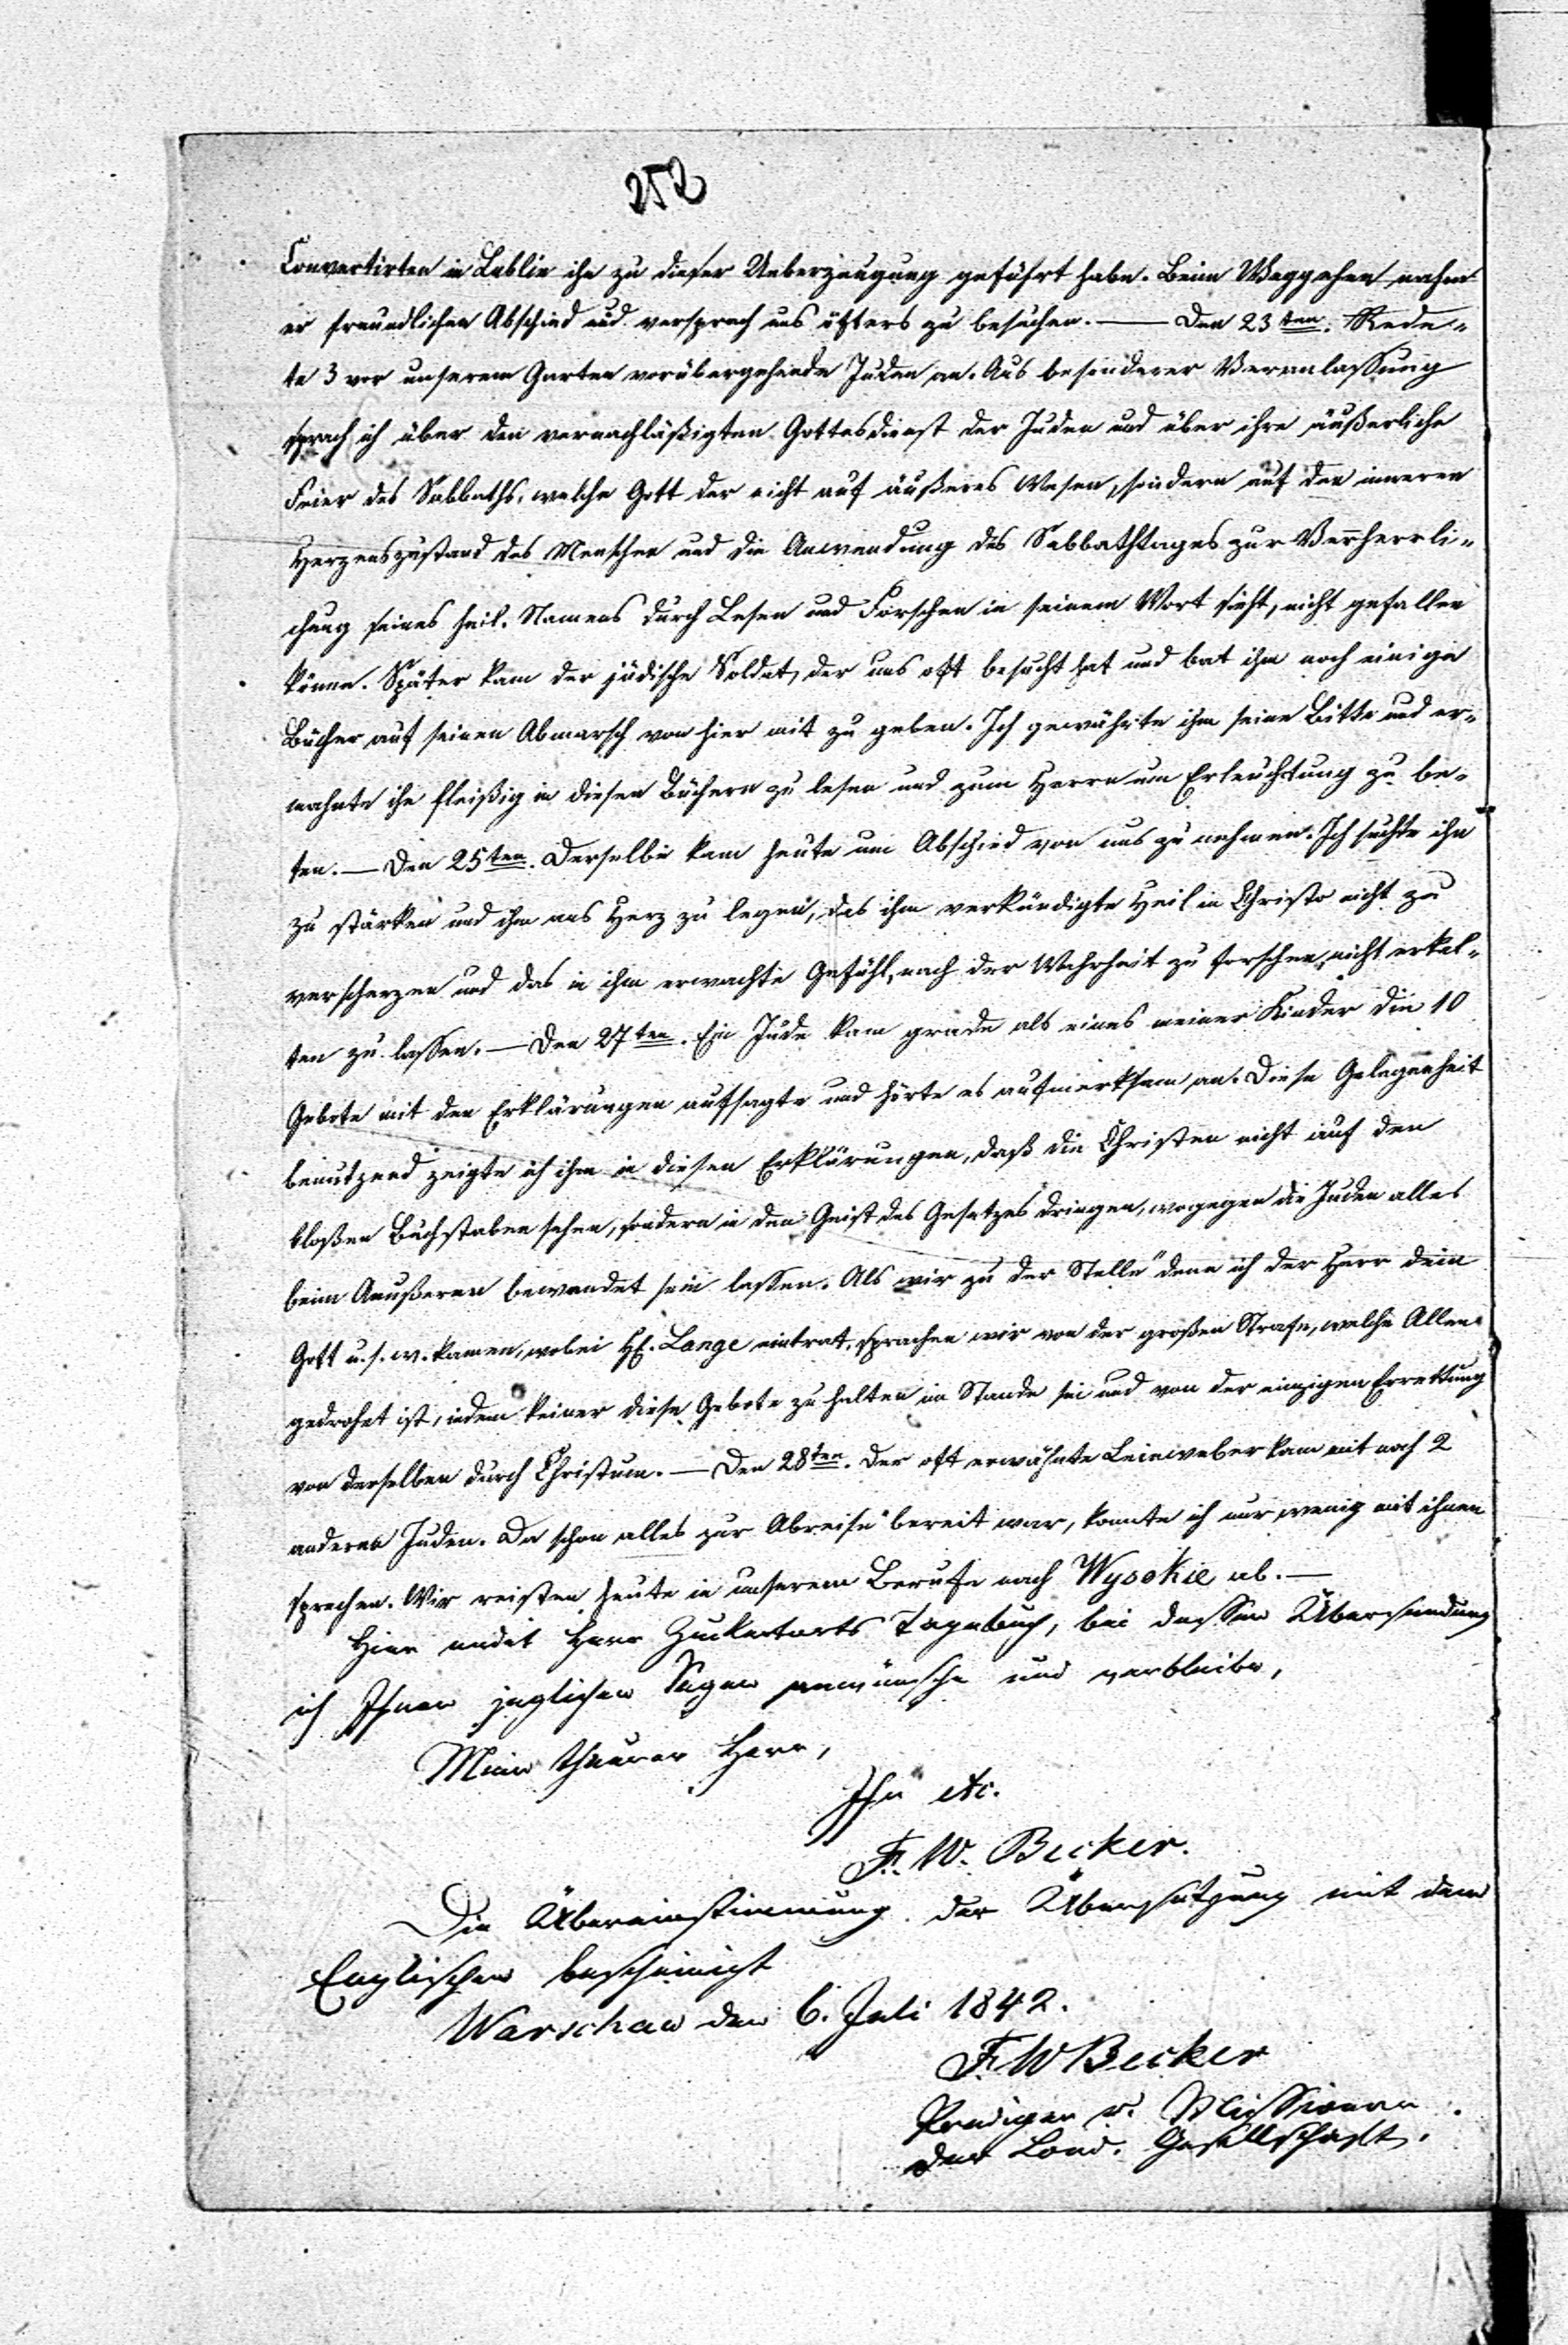 252
Convertirten in Lublin ihn zu dieser Ueberzeugung geführt habe. Beim Weggehen nahm
er freundlichen Abschied und versprach uns öfters zu besuchen. — Den 23ten. Rede-
te 3 vor unserem Garten vorübergehende Juden an. Aus besonderer Veranlaßung
sprach ich über den vernachläßigten Gottesdienst der Juden und über ihre äußerliche
Feier des Sabbaths, welche Gott der nicht auf äußeres Wesen, sondern auf den inneren
Herzenszustand des Menschen und die Anwendung des Sabbathtages zur Verherrli-
chung seines heil. Namens durch Lesen und Forschen in seinem Wort sieht, nicht gefallen
könne. Später kam der jüdische Soldat, der uns oft besucht hat und bat ihm noch einige
Bücher auf seinen Abmarsch von hier mit zu geben. Ich gewährte ihm seine Bitte und er-
mahnte ihn fleißig in diesen Büchern zu lesen und zum Herrn um Erleuchtung zu be-
ten. — Den 25ten. Derselbe kam heute um Abschied von uns zu nehmen. Ich suchte ihn
zu stärken und ihm ans Herz zu legen, das ihm verkündigte Heil in Christo nicht zu
verscherzen und das in ihm erwachte Gefühl, nach der Wahrheit zu forschen, nicht erkal-
ten zu lassen. — Den 27ten. Ein Jude kam grade als eines meiner Kinder die 10
Gebote mit den Erklärungen aufsagte und hörte es aufmerksam an. Diese Gelegenheit
benutzend zeigte ich ihm in diesen Erklärungen, daß die Christen nicht auf den
bloßen Buchstaben sehen, sondern in den Geist des Gesetzes dringen, wogegen die Juden alles
beim Aeußeren bewendet sein lassen. Als wir zu der Stelle "denn ich der Herr dein
Gott u. s. w. kamen, wobei H. Lange eintrat, sprachen wir von der großen Strafe, welche Allen
gedrohet ist, indem keiner diese Gebote zu halten im Stande sei und von der einzigen Errettung
von derselben durch Christum. — Den 28ten. Der oft erwähnte Leineweber kam mit noch 2
anderen Juden. Da schon alles zur Abreise bereit war, konnte ich nur wenig mit ihnen
sprechen. Wir reisten heute in unserem Berufe nach Wysokie ab. —
Hier endet Herr Zuckertorts Tagebuch, bei dessen Übersendung
ich Ihnen jeglichen Segen anwünsche und verbleibe,
Mein theurer Herr,
Ihr etc.
F. W. Becker.
Die Übereinstimmung der Übersetzung mit dem
Englischen bescheinigt
Warschau den 6. Juli 1842.
F. W Becker
Prediger u. Missionar
der Lond. Gesellschaft.